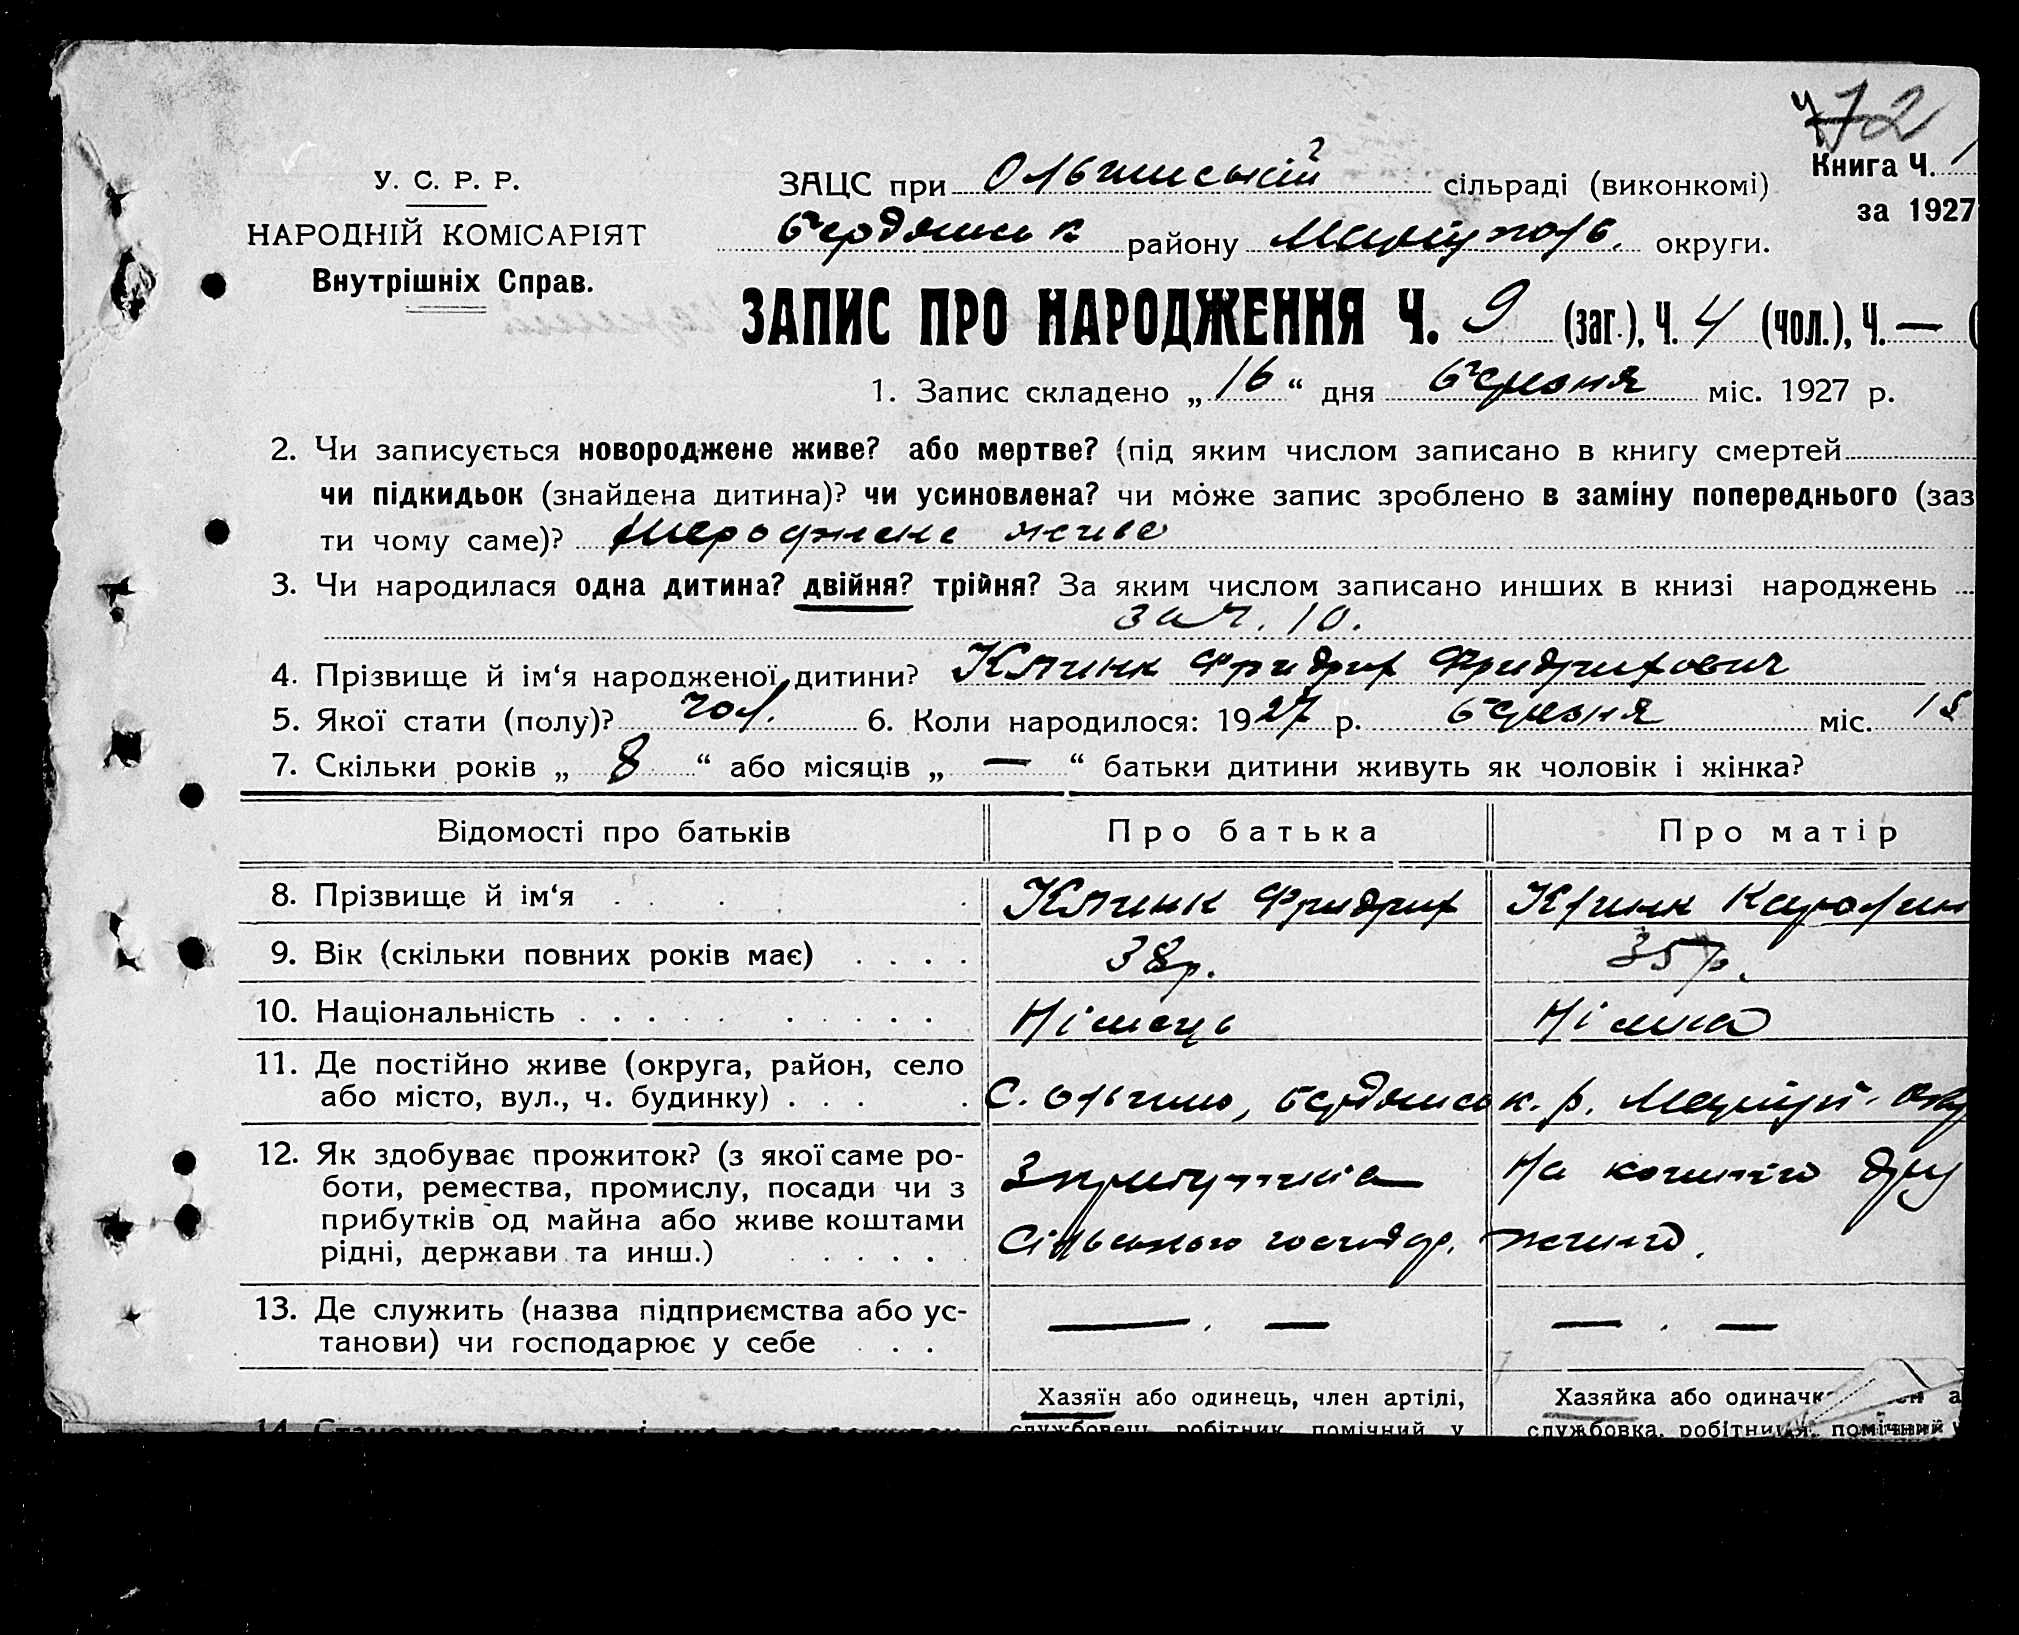 72
Книга Ч. 1
за 1927
У. С. Р. Р.
НАРОДНІЙ КОМІСАРІЯТ
Внутрішніх Справ.
ЗАЦС при Ольгинській сільраді (виконкомі)
Бердянськ району Маріуполь. округи.
ЗАПИС ПРО НАРОДЖЕННЯ Ч. 9 (заг.), Ч. 4 (чол.), Ч. — (
1. Запис складено „ 16 “ дня березня міс. 1927 р.
2. Чи записується новороджене живе? або мертве? (під яким числом записано в книгу смертей
чи підкидьок (знайдена дитина)? чи усиновлена? чи може запис зроблено в заміну попереднього (заз
ти чому саме)? живе
3. Чи народилася одна дитина? двійня? трійня? За яким числом записано инших в книзі народжень
за ч. 10.
4. Прізвище й ім‘я народженої дитини? Клинк Фридрих Фридрихович
5. Якої стати (полу)? чол. 6. Коли народилося: 1927 р. березня міс.
7. Скільки років „ 8 “ або місяців „ — “ батьки дитини живуть як чоловік і жінка?
Відомості про батьків Про батька Про матір
8. Прізвище й ім‘я . . . . Клинк Фридрих Клинк Каролин
9. Вік (скільки повних років має) . . . . 38р. 35р.
10. Національність . . . . . . . . . . Німець Німка
11. Де постійно живе (округа, район, село
або місто, вул., ч. будинку) . . . . С. Ольгино, Бердянськ. р. Маріуп. Окр
12. Як здобуває прожиток? (з якої саме ро-
боти, ремества, промислу, посади чи з
прибутків од майна або живе коштами
рідні, держави та инш.) . . . . .
З прибутків На кошти дру
сільського господар. жини.
13. Де служить (назва підприємства або ус-
танови) чи господарює у себе . . . — . — — . —
Хазяїн або одинець, член артілі, Хазяйка або одиначка
14. службовець, робітник, помічний у службовка, робітниця, помічний у